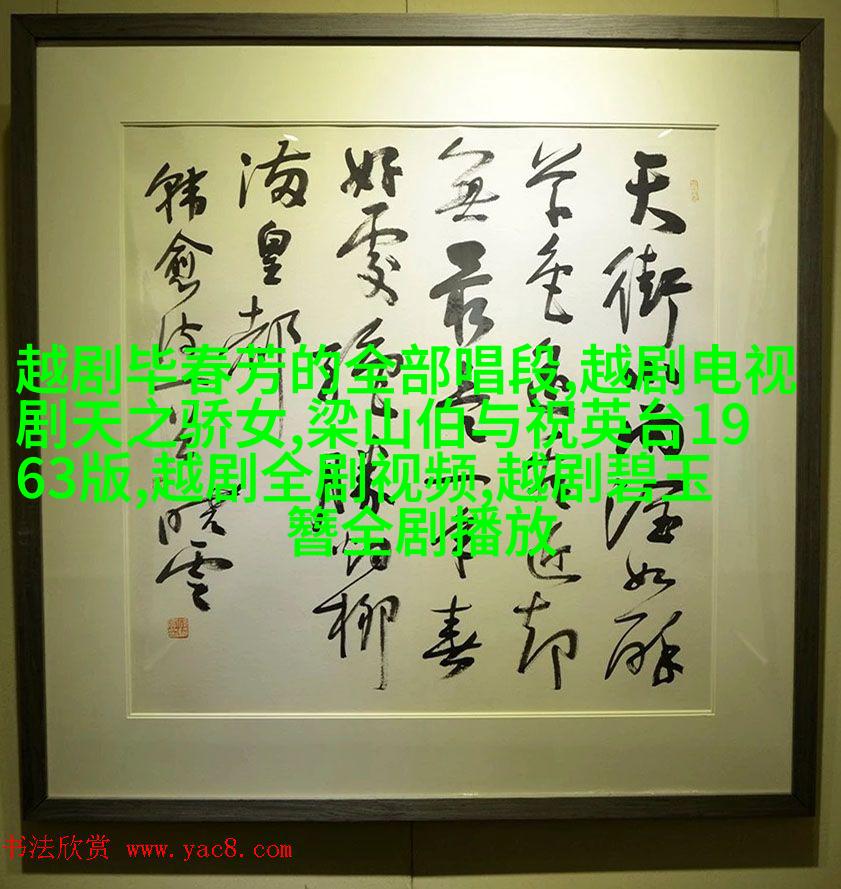 天街小雨潤如酥
草色遙看近却
無最是一年春
好處絕勝煙柳
滿皇都
韓愈詩 曉雲
越剧毕春芳的全部唱段,越剧电视
剧天之骄女,梁山伯与祝英台19
63版,越剧全剧视频,越剧碧玉
簪全剧播放
书法欣赏 www.yac8.com